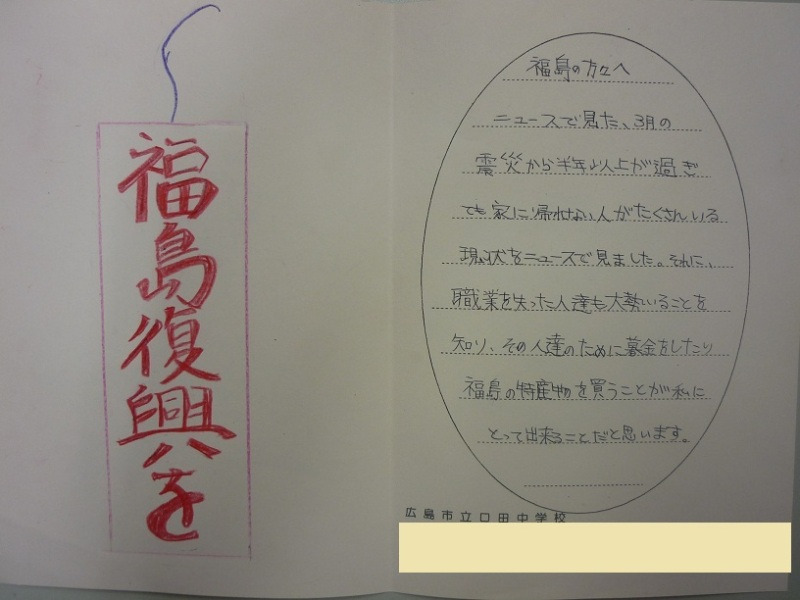 福島復興を
福島の方々へ
ニュースで見た、3月の
震災から半年以上が過ぎ
ても家に帰れない人がたくさんいる
現状をニュースで見ました。それに、
職業を失った人達も大勢いることを
知り、その人達のために募金をしたり
福島の特産物を買うことが私に
とって出来ることだと思います。
広島市立口田中学校